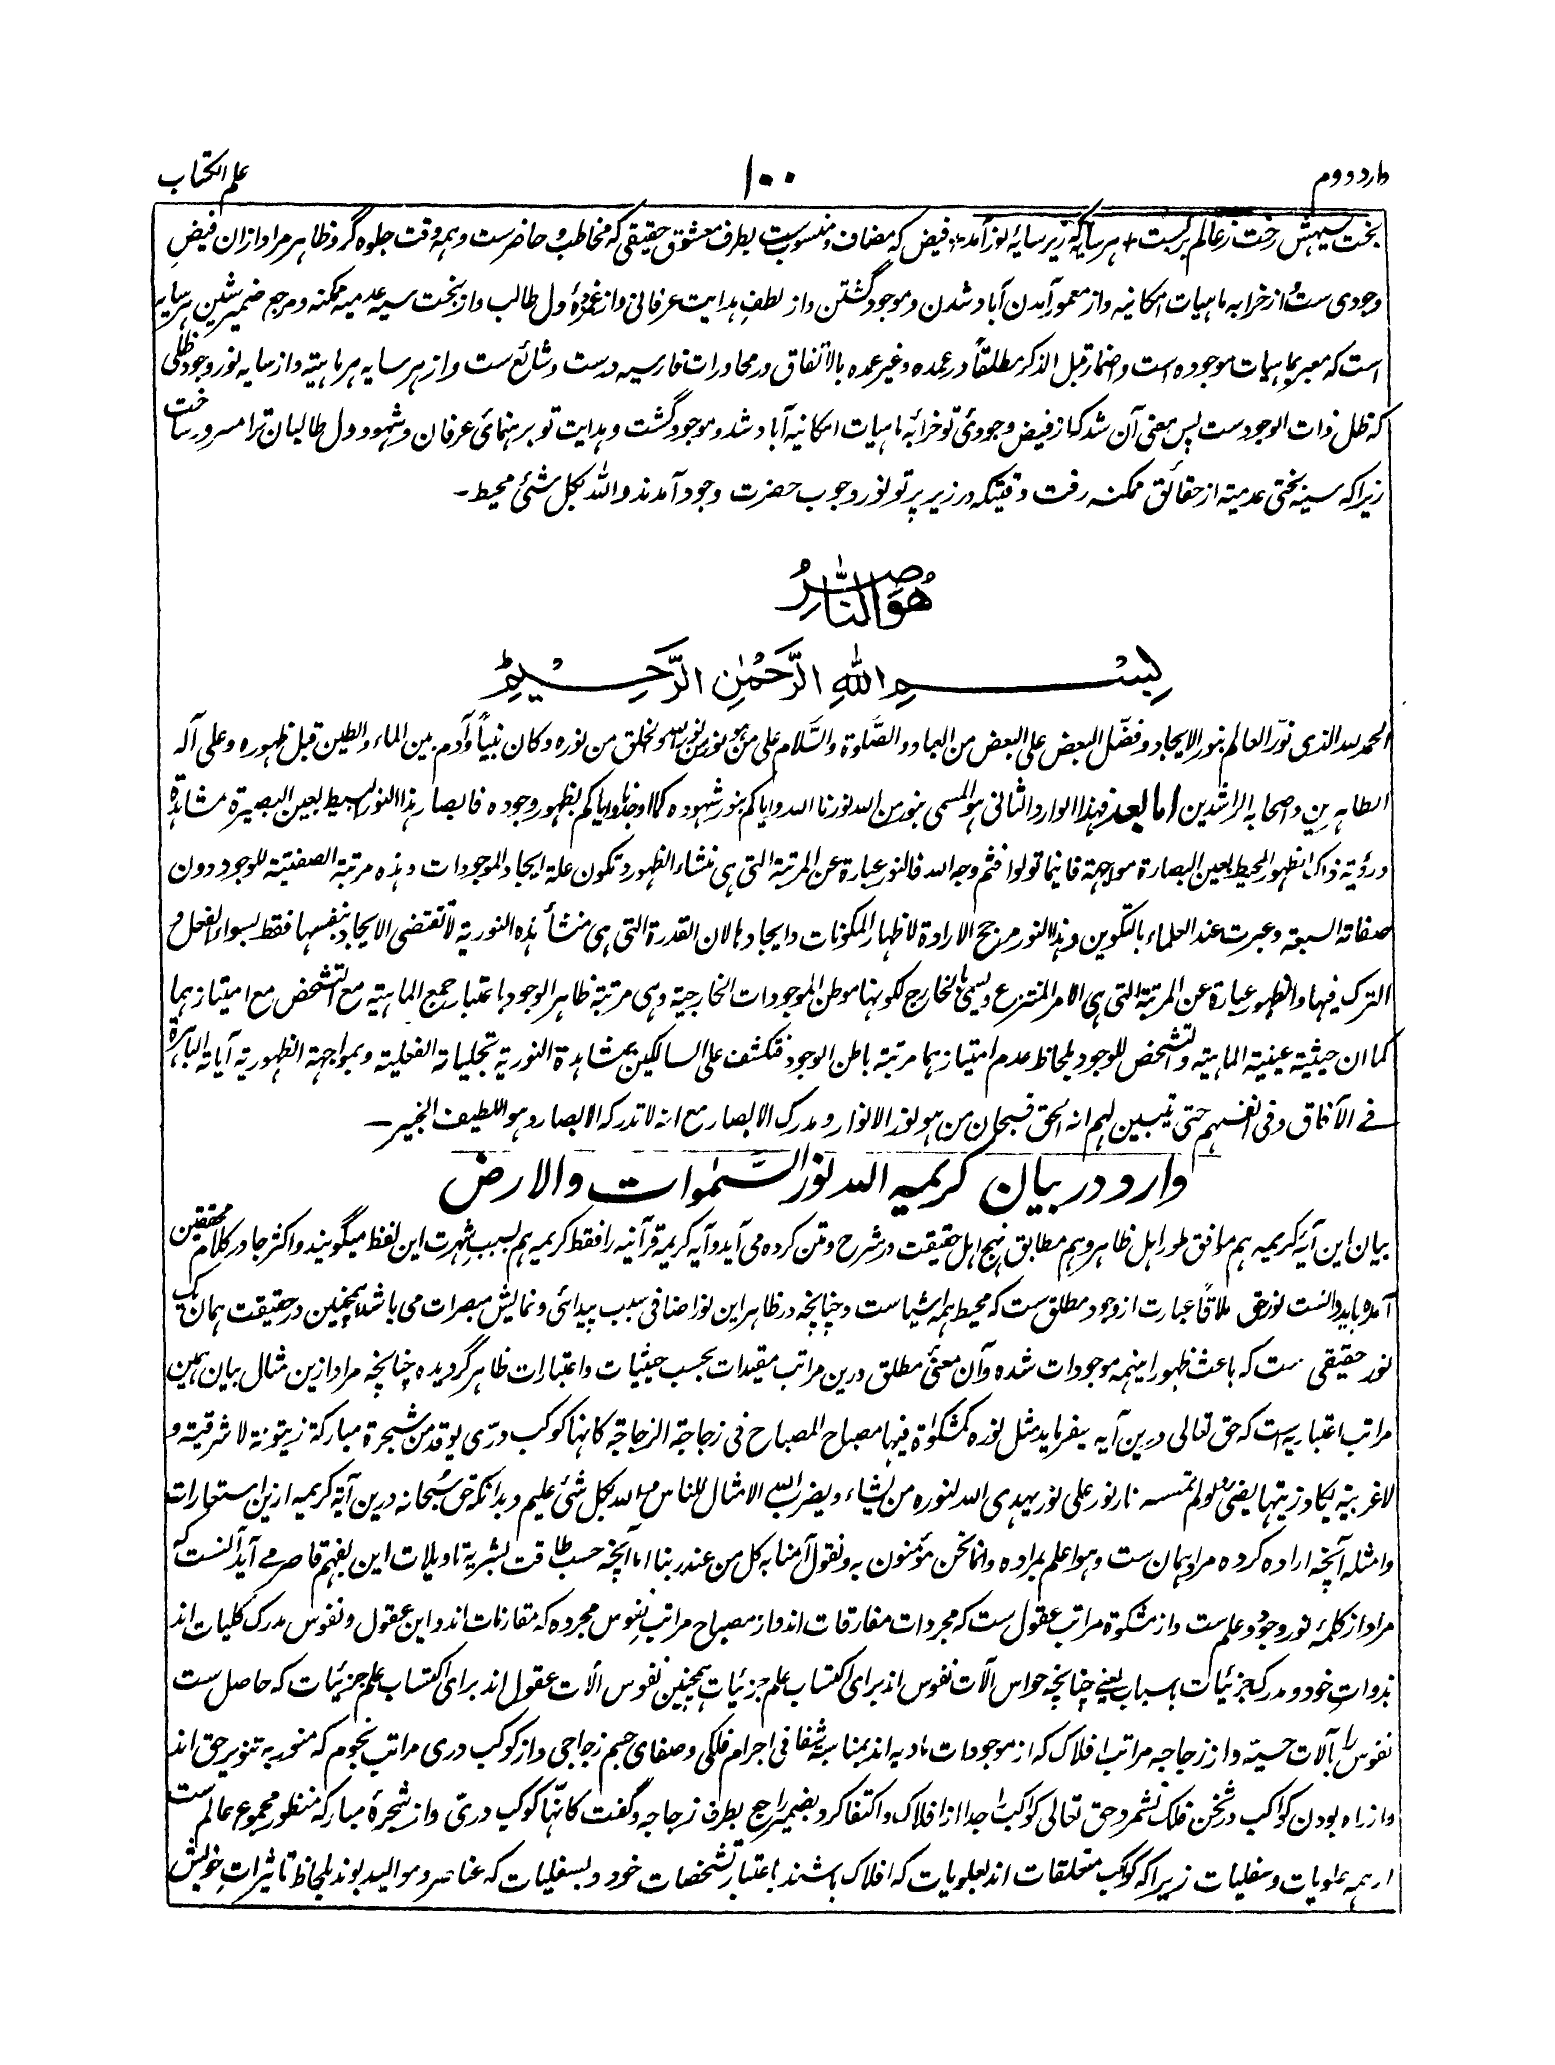 علم الکتاب ۱۰۰ وارد دوم
بخت سیهش رخت ز عالم بربست + هر سایه که زیر سایهٔ نور آمد ؞ فیض که مضاف و منسوب ست بطرف معشوق حقیقی که مخاطب و حاضر ست و همه وقت جلوه گر و ظاهر مراد ازان فیضِ
وجودی ست و از خرابه ماهیات امکانیه و از معمور آمدن آباد شدن و موجود گشتن و از لطفِ هدایت عرفانی و از غمزدهٔ دل طالب و از بخت سیه عدمیه ممکنه و مرجع ضمیر شین هر سایه
است که معبر بماهیات موجوده است و اضمار قبل الذکر مطلقاً در عمده و غیر عمده بالاتفاق در محاورات فارسیه درست و شائع ست و از هر سایه هر ماهیته و از سایه نور وجود ظلی
که ظل ذات الوجود ست پس معنی آن شد که از فیض وجودیٔ تو خرابهٔ ماهیات امکانیه آباد شد و موجود گشت و هدایت تو برهنمای عرفان و شهود دل طالبان ترا مسرور ساخت
زیرا که سیه بختی عدمیته از حقائق ممکنه رفت وقتیکه در زیر پرتو نور وجوب حضرت وجود آمدند والله بکل شیٔ محیط۔
هُوَ النَّاصِرُ
بِسْمِ اللهِ الرَّحْمٰنِ الرَّحِيْمِ
الحمد لله الذی نوّر العالم بنور الایجاد و فضّل البعض علی البعض من العباد والصّلوة والسّلام علی من هو نور من نور الله و نخلق من نوره و کان نبیاً و آدم بین الماء والطین قبل ظهوره و علی آله
الطاهرین و اصحابه الراشدین اما بعد فهذا الوارد الثانی هو المسمی بنور من الله نورنا الله و ایاکم بنور شهوده کما اوجدنا و ایاکم بظهور وجوده فابصار هذا النور البسیط بعین البصیرة مشاهدة
ورؤیة ذاک الظهور المحیط بعین البصارة مواجهة فاینما تولوا فثم وجه الله فالنور عبارة عن المرتبة التی هی منشاء الظهور و تکون علة ایجاد الموجودات و هذه مرتبة الصفتیة للوجود دون
صفاته السبعة و عبرت عند العلماء بالتکوین و هذا النور مرجح الارادة لاظهار المکونات و ایجادها لان القدرة التی هی منشأ هذه النوریة لا تقتضی الایجاد بنفسها فقط لسواء الفعل و
الترک فیها والظهور عبارة عن المرتبة التی هی الامر المنتزع و یسمی بالخارج لکونها موطن الموجودات الخارجیة و هی مرتبة ظاهر الوجود باعتبار جمع الماهیته مع التشخص مع امتیازهما
کما ان حیثیة عینیة الماهیته والتشخص للوجود بلحاظ عدم امتیازهما مرتبة باطن الوجود فتکشف علی السالکین بمشاهدة النوریة تجلیات الفعلیة و بمواجهة الظهوریة آیاته الباهرة
فی الآفاق و فی انفسهم حتی یتبین لهم انه الحق فسبحان من هو نور الانوار و مدرک الابصار مع انه لا تدرکه الابصار و هو اللطیف الخبیر—
وارد در بیان کریمه الله نور السَّمٰوات والارض
بیان این آیهٔ کریمه هم موافق طور اهل ظاهر و هم مطابق نهج اهل حقیقت در شرح و متن کرده می آید و آیه کریمهٔ قرآنیه را فقط کریمه هم بسبب شهرت این لفظ میگویند و اکثر جا در کلام محققین
آمده باید دانست نور حق عبارت از وجود مطلق ست که محیط همه اشیاست و چنانچه در ظاهر این نور اضافی سبب پیدائی و نمایش مبصرات می باشد همچنین در حقیقت همان یک
نور حقیقی ست که باعث ظهور اینهمه موجودات شده و آن معنیٔ مطلق درین مراتب مقیدات بحسب حیثیات و اعتبارات ظاهر گردیده چنانچه مراد ازین مثال بیان همین
مراتب اعتباریه است که حق تعالی درین آیه میفرماید مثل نوره کمشکٰوة فیها مصباح المصباح فی زجاجة الزجاجة کانها کوکب درّی یوقد من شجرة مبارکة زیتونة لا شرقیة و
لا غربیة یکاد زیتها یضیٔ و لو لم تمسسه نار نور علی نور یهدی الله لنوره من یشاء و یضرب الله الامثال للناس والله بکل شیٔ علیم و بدانکه حق سبحانه درین آیهٔ کریمه ازین استعارات
و امثله آنچه اراده کرده مراد همان ست و هو اعلم بمراده و انما نحن مؤمنون به و نقول آمنا به کل من عند ربنا اما آنچه حسب طاقت بشریه تاویلات این بفهم قاصر می آید آنست که
مراد از کلمهٔ نور وجود و علم ست و از مشکوة مراتب عقول ست که مجردات مفارقات اند و از مصباح مراتب نفوس مجرده که مقارنات اند و این عقول و نفوس مدرک کلیات اند
بذوات خود و مدرک جزئیات باسباب یعنی چنانچه حواس آلات نفوس اند برای اکتساب علم جزئیات همچنین نفوس آلات عقول اند برای اکتساب علم جزئیات که حاصل ست
نفوس را بآلات حسیّه و از زجاجه مراتب افلاک که از موجودات مادیه اند بمناسبة شفافی اجرام فلکی و صفای جسم زجاجی و از کوکب دری مراتب نجوم که منور به تنویر حق اند
و از راه بودن کواکب در ثخن فلک نشمرد حق تعالی کواکب را جدا از افلاک و اکتفا کرد بضمیر راجع بطرف زجاجه و گفت کانّها کوکب دریّ و از شجرهٔ مبارکه منظور مجموع عالم ست
از همه علویات و سفلیات زیرا که کواکب متعلقات اند بعلویات که افلاک باشند باعتبار تشخصات خود و بسفلیات که عناصر و موالید بوند بلحاظ تاثیراتِ خویش